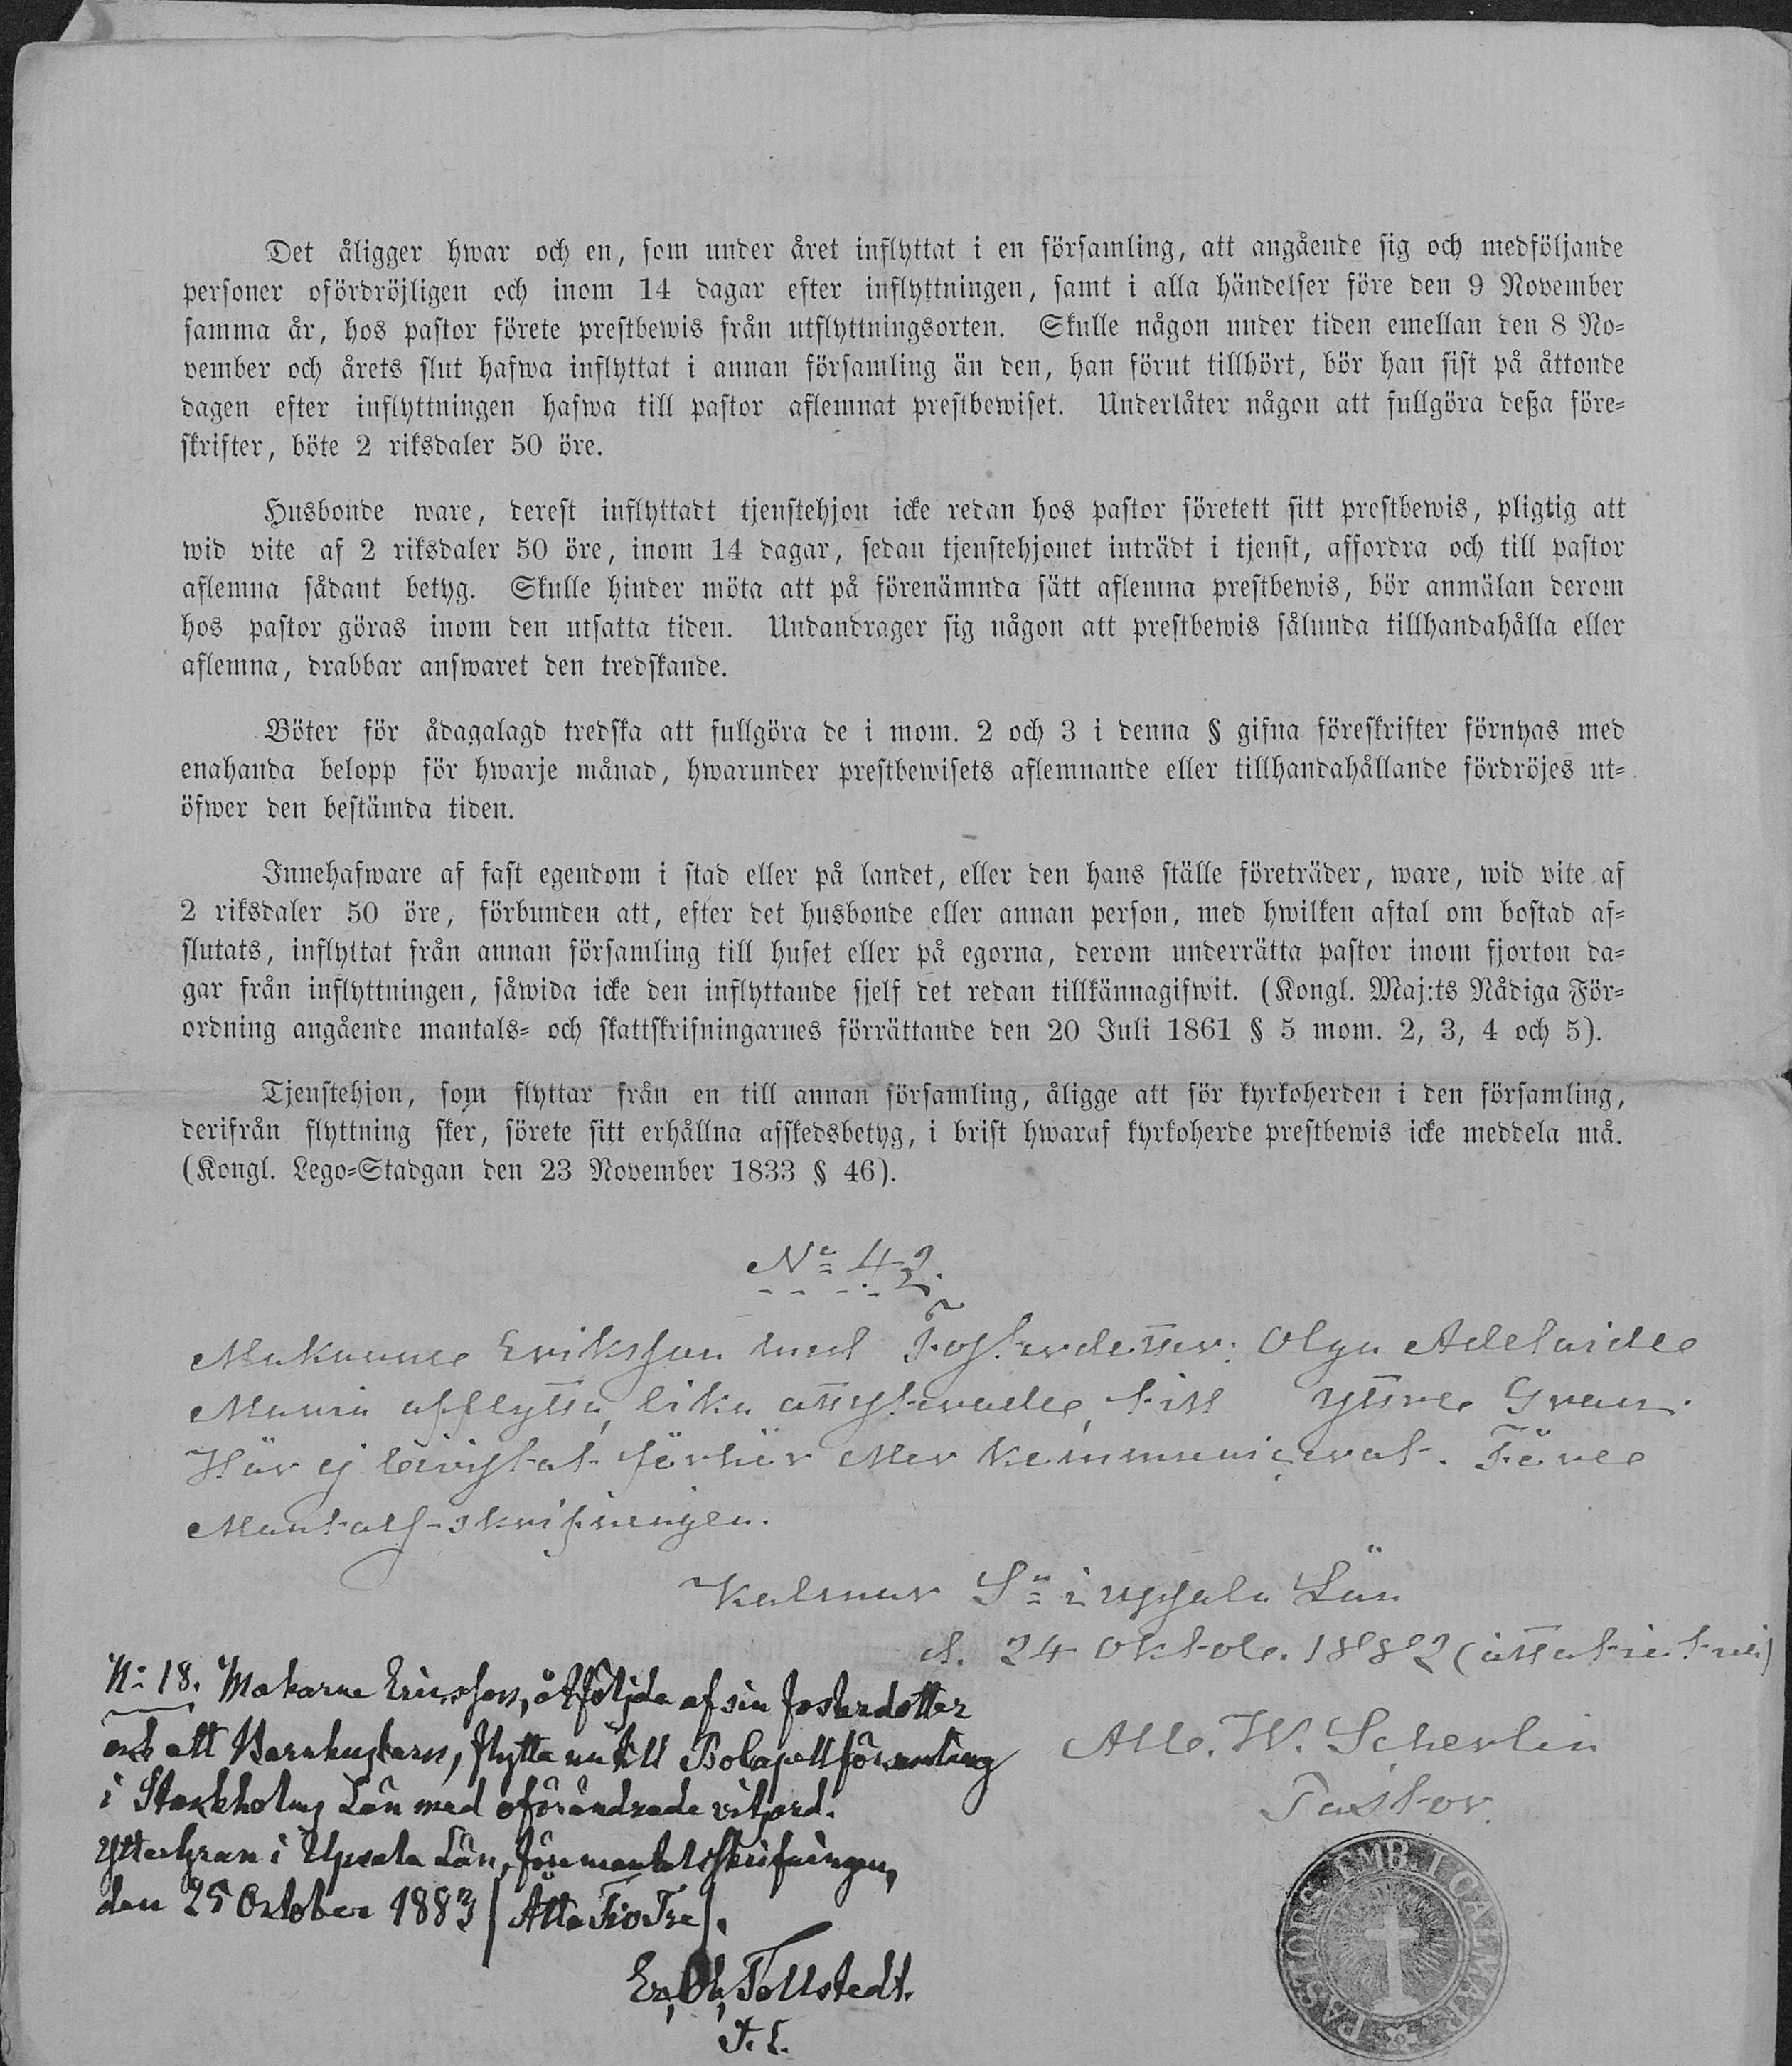 Det åligger hwar och en, som under året inflyttat i en församling, att angående sig och medföljande
personer ofördröjligen och inom 14 dagar efter inflyttningen, samt i alla händelser före den 9 November
samma år, hos pastor förete prestbewis från utflyttningsorten. Skulle någon under tiden emellan den 8 No-
vember och årets slut hafwa inflyttat i annan församling än den, han förut tillhört, bör han sist på åttonde
dagen efter inflyttningen hafwa till pastor aflemnat prestbewiset. Underlåter någon att fullgöra deßa före-
skrifter, böte 2 riksdaler 50 öre.
Husbonde ware, derest inflyttadt tjenstehjon icke redan hos pastor företett sitt prestbewis, pligtig att
wid vite af 2 riksdaler 50 öre, inom 14 dagar, sedan tjenstehjonet inträdt i tjenst, affordra och till pastor
aflemna sådant betyg. Skulle hinder möta att på förenämnda sätt aflemna prestbewis, bör anmälan derom
hos pastor göras inom den utsatta tiden. Undandrager sig någon att prestbewis sålunda tillhandahålla eller
aflemna, drabbar answaret den tredskande.
Böter för ådagalagd tredska att fullgöra de i mom. 2 och 3 i denna § gifna föreskrifter förnyas med
enahanda belopp för hwarje månad, hwarunder prestbewisets aflemnande eller tillhandahållande fördröjes ut-
öfwer den bestämda tiden.
Innehafware af fast egendom i stad eller på landet, eller den hans ställe företräder, ware, wid vite af
2 riksdaler 50 öre, förbunden att, efter det husbonde eller annan person, med hwilken aftal om bostad af-
slutats, inflyttat från annan församling till huset eller på egorna, derom underrätta pastor inom fjorton da-
gar från inflyttningen, såwida icke den inflyttande sjelf det redan tillkännagifwit. (Kongl. Maj:ts Nådiga För-
ordning angående mantals- och skattskrifningarnes förrättande den 20 Juli 1861 § 5 mom. 2, 3, 4 och 5).
Tjenstehjon, som flyttar från en till annan församling, åligge att för kyrkoherden i den församling,
derifrån flyttning sker, förete sitt erhållna afskedsbetyg, i brist hwaraf kyrkoherde prestbewis icke meddela må.
(Kongl. Lego-Stadgan den 23 November 1833 § 46).
No 42.
Makarne Eriksson med Fosterdotter: Olga Adelaide
Maria afflytta, lika attesterade, till Yttre Gran.
Här ej bevistat förhör eller kommunicerat. Före
Mantals-skrifningen.
Kalmar Sn i Upsala Län
d. 24 Oktob. 1882 (åttatietvå)
Alb. W. Scherlin
Pastor.
N: 18. Makarne Ericsson, åtföljda af sin fosterdotter
och ett Barnhusbarn, flytta nu till församling
i Stockholms Län med oförändrade vitsord.
Yttergran i Upsala Län, före mantalsskrifningen,
den 25 October 1883 (Åtta Tio Tre).
Er, Ol, Tollstedt.
PASTORS EMB. I CALMAR.